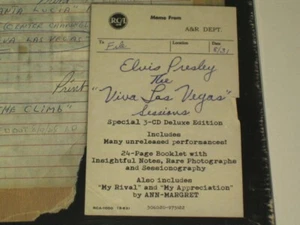 RCA
Memo From
A&R DEPT.
To
File
Location
Date
8/31
Elvis Presley
The
"Viva Las Vegas"
Sessions
Special 3-CD Deluxe Edition
Includes
Many unreleased performances!
24-Page Booklet with
Insightful Notes, Rare Photographs
and Sessionography
Also includes
"My Rival" and "My Appreciation"
by ANN-MARGRET
Print
THE CLIMB"